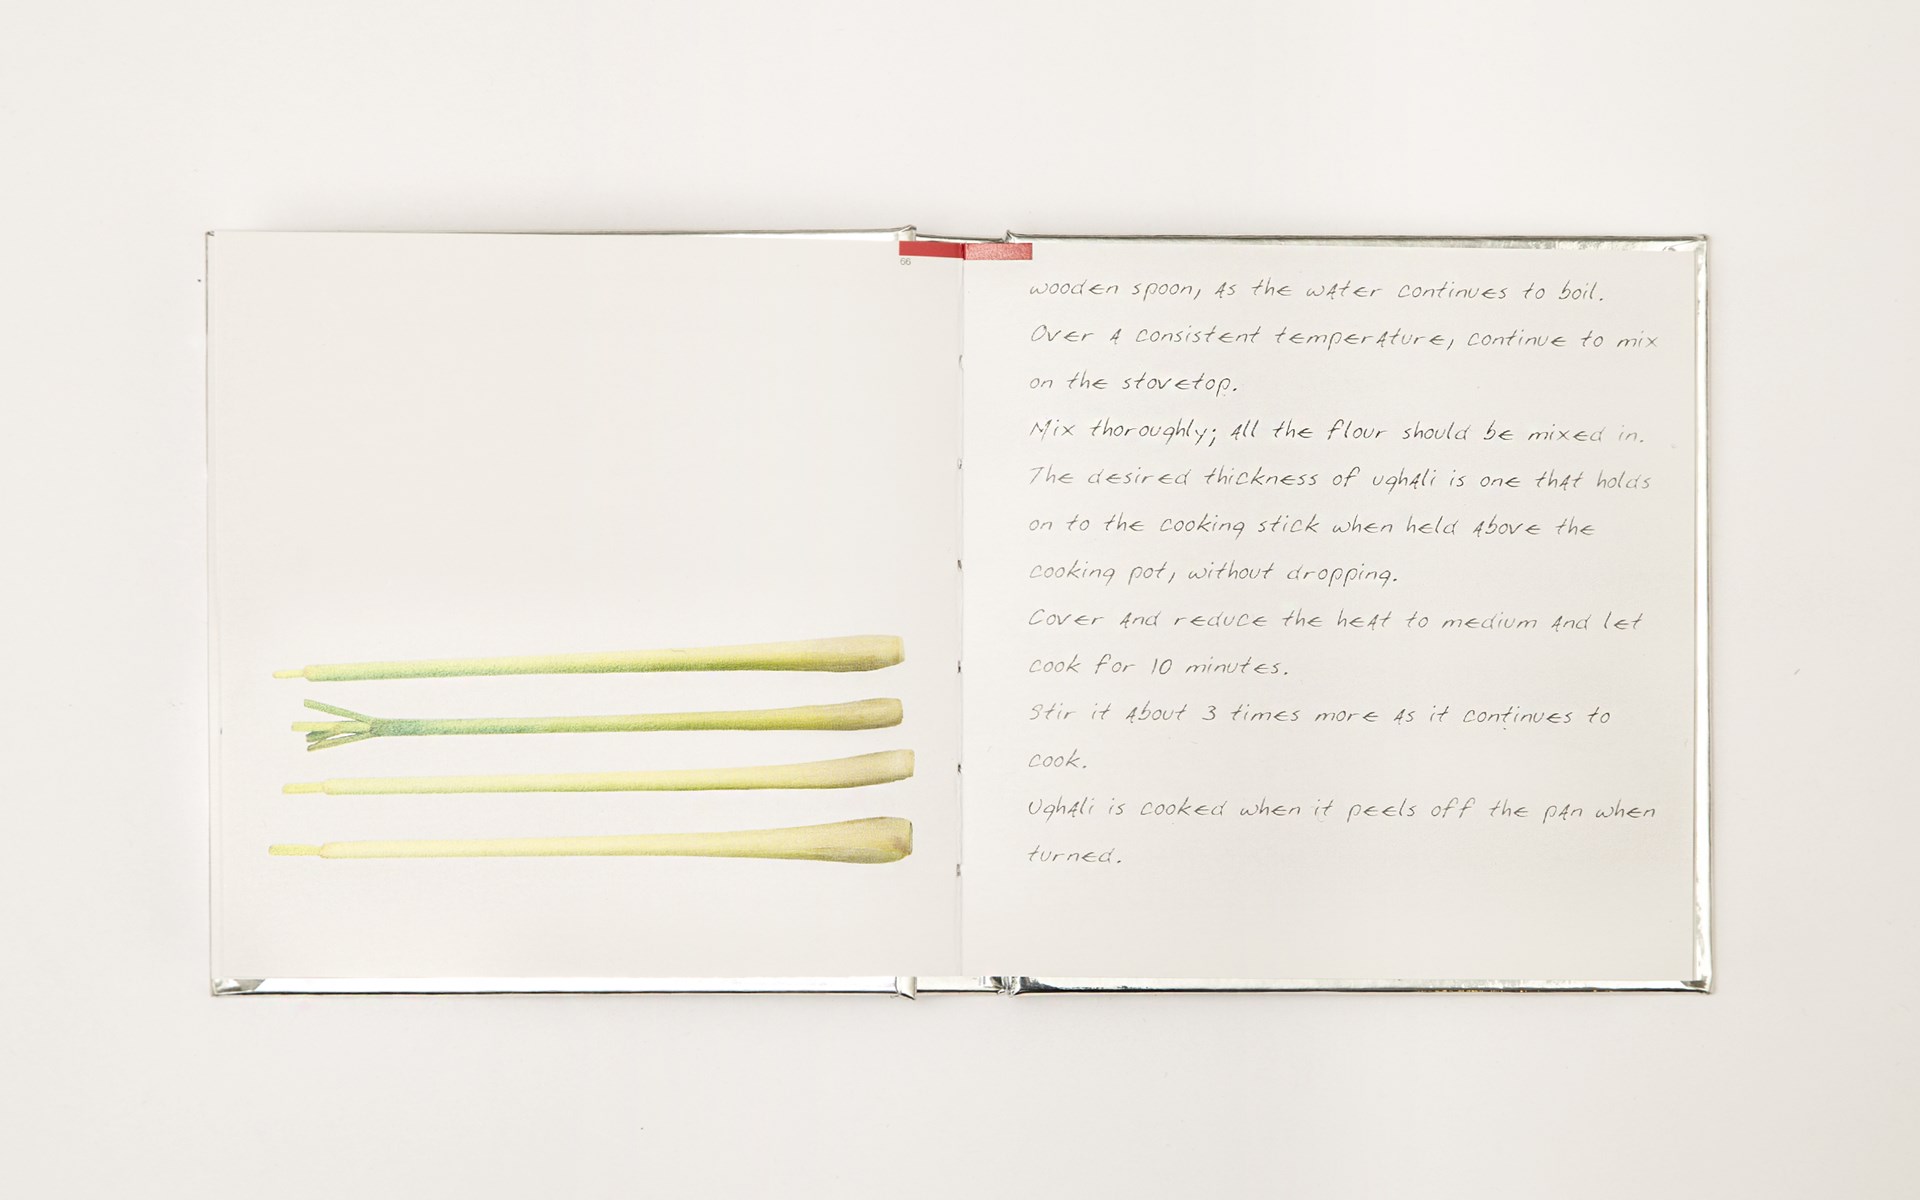 66
wooden spoon, as the water continues to boil.
Over a consistent temperature, continue to mix
on the stovetop.
Mix thoroughly; all the flour should be mixed in.
The desired thickness of ughali is one that holds
on to the cooking stick when held above the
cooking pot, without dropping.
Cover and reduce the heat to medium and let
cook for 10 minutes.
Stir it about 3 times more as it continues to
cook.
Ughali is cooked when it peels off the pan when
turned.